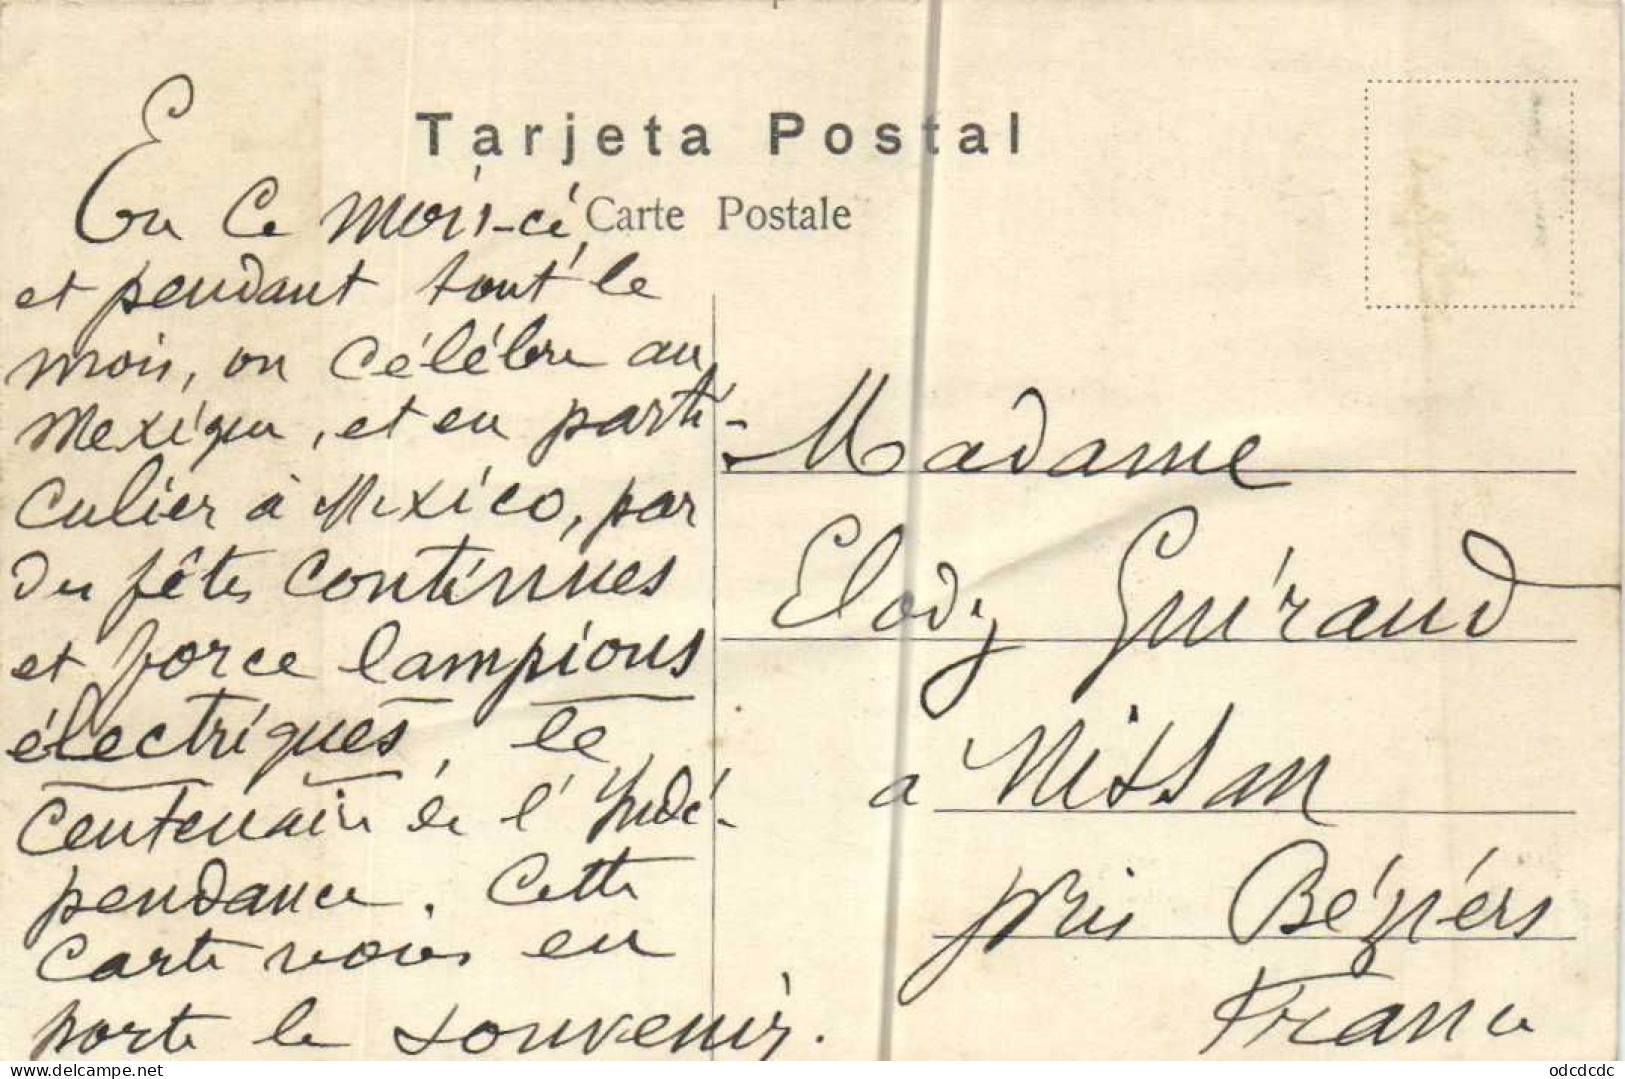 Tarjeta Postal
Carte Postale
En ce mois-ci,
et pendant tout le
mois, on célèbre au
Mexique, et en parti-
culier à Mexico, par
des fêtes continues
et force lampions
électriques, le
centenaire de l'Indé-
pendance. Cette
carte vous en
porte le souvenir.
Madame
Elody Guiraud
a Nissan
près Béziers
France
www.delcampe.net
odcdcdc